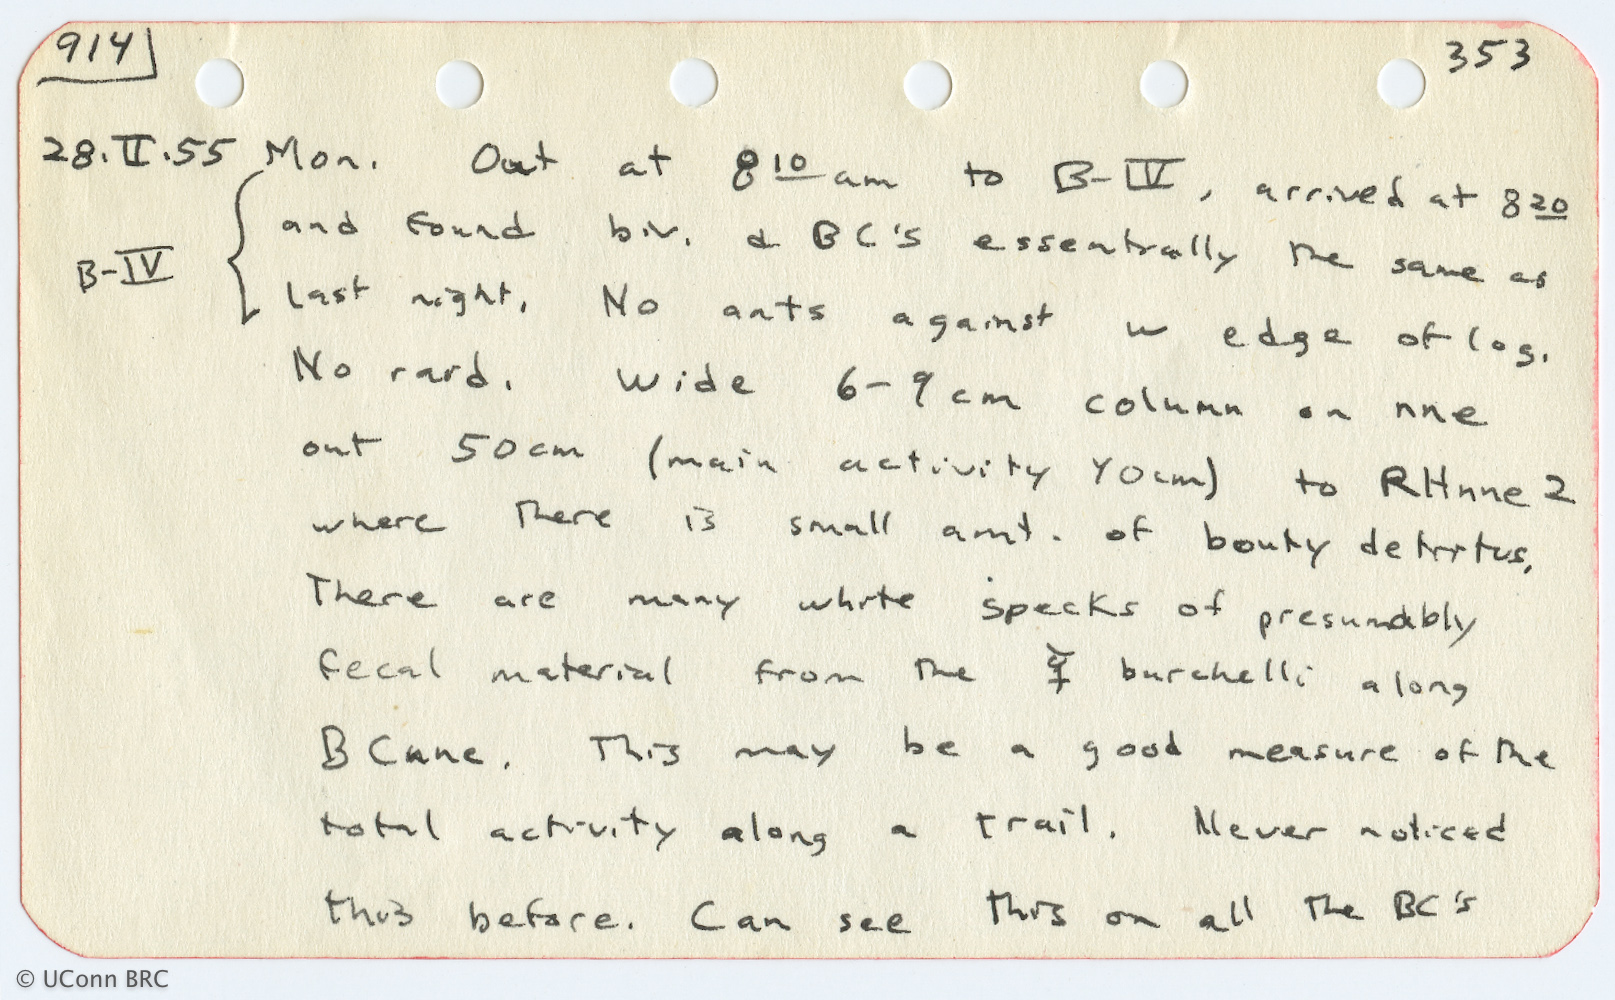 914 353
28.II.55 Mon. Out at 8 10 am to B-IV, arrived at 8 20
and found biv. & BC's essentially the same as
B-IV
last night. No ants against w edge of log.
No raid. Wide 6-9 cm column on nne
out 50cm (main activity 40cm) to RHnne 2
where there is small amt. of booty detritus.
There are many white specks of presumably
fecal material from the ☿ burchelli along
BCnne. This may be a good measure of the
total activity along a trail. Never noticed
this before. Can see this on all the BC's
© UConn BRC